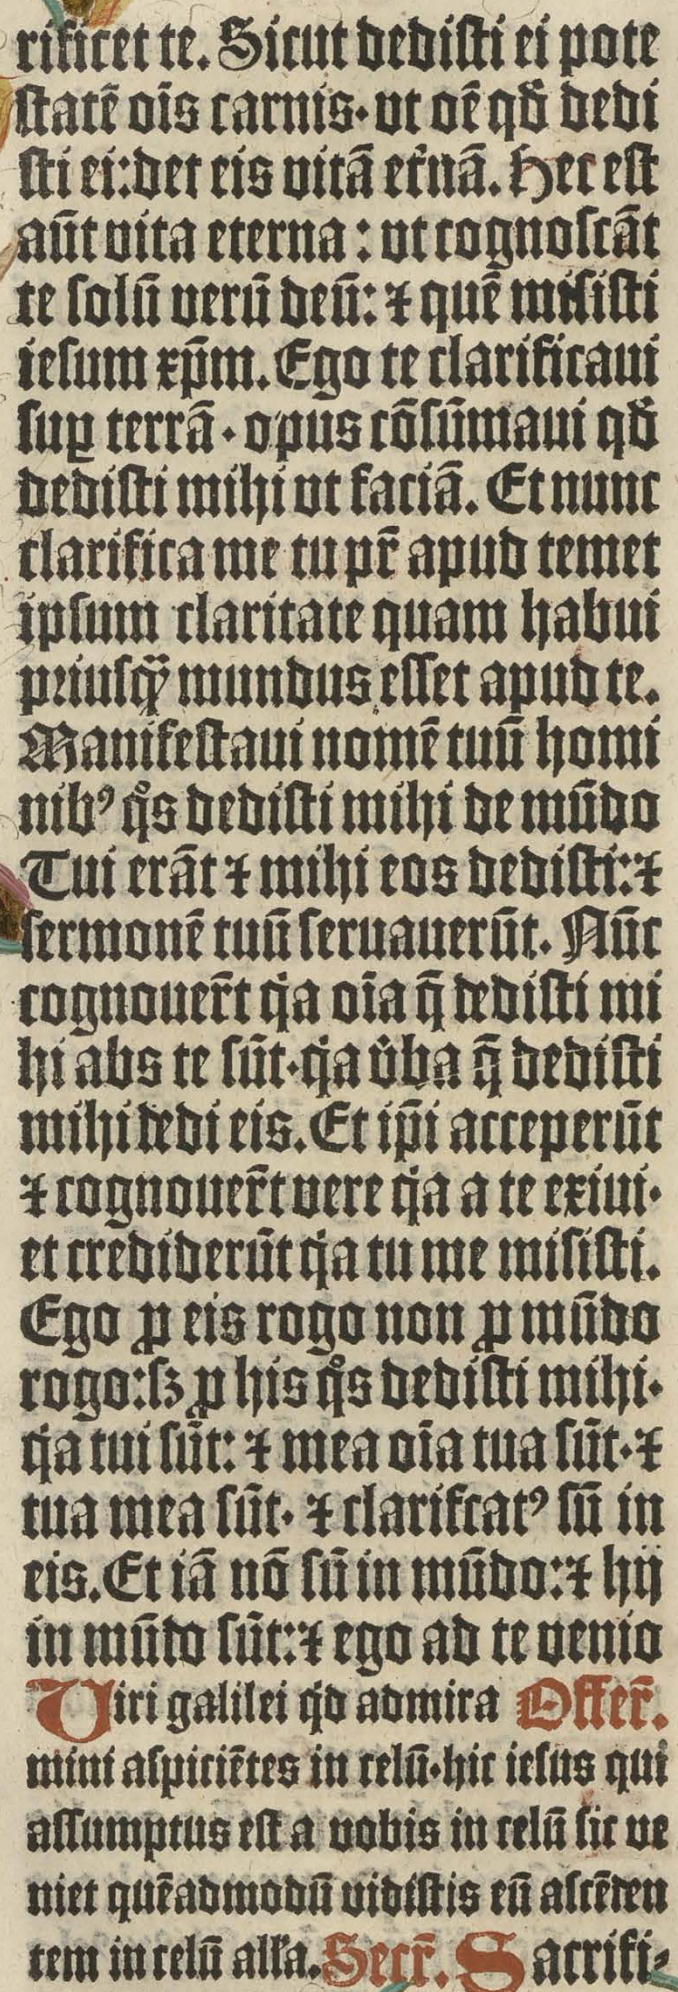 rificet te. Sicut dedisti ei pote
statē oīs carnis· vt oē qđ dedi
sti ei: det eis vitā et̄nā. Hec est
aūt vita eterna: vt cognoscāt
te solū verū deū: ⁊ quē misisti
iesum xp̄m. Ego te clarificaui
suꝑ terrā· opus cōsūmaui qđ
dedisti mihi vt faciā. Et nunc
clarifica me tu pr̄ apud temet
ipsum claritate quam habui
priusqᷓ mundus esset apud te.
Manifestaui nomē tuū homi
nibꝰ qͦs dedisti mihi de mūdo
Tui erāt ⁊ mihi eos dedisti: ⁊
sermonē tuū seruauerūt. Nūc
cognouer̄t qia oīa q̄ dedisti mi
hi abs te sūt· qia v̓ba q̄ dedisti
mihi dedi eis. Et ip̄i acceperūt
⁊ cognouer̄t vere qia a te exiui·
et crediderūt qia tu me misisti.
Ego ꝓ eis rogo non ꝓ mūdo
rogo: sꝫ ꝓ his qͦs dedisti mihi·
qia tui sūt: ⁊ mea oīa tua sūt· ⁊
tua mea sūt· ⁊ clarifcatꝰ sū in
eis. Et iā nō sū in mūdo: ⁊ hij
in mūdo sūt: ⁊ ego ad te venio
Uiri galilei qid admira Offer̄.
mini aspiciētes in celū· hic iesus qui
assumptus est a vobis in celū sic ve
niet quēadmodū vidistis eū ascēden
tem in celū all'a. Secr̄. Sacrifi⸗